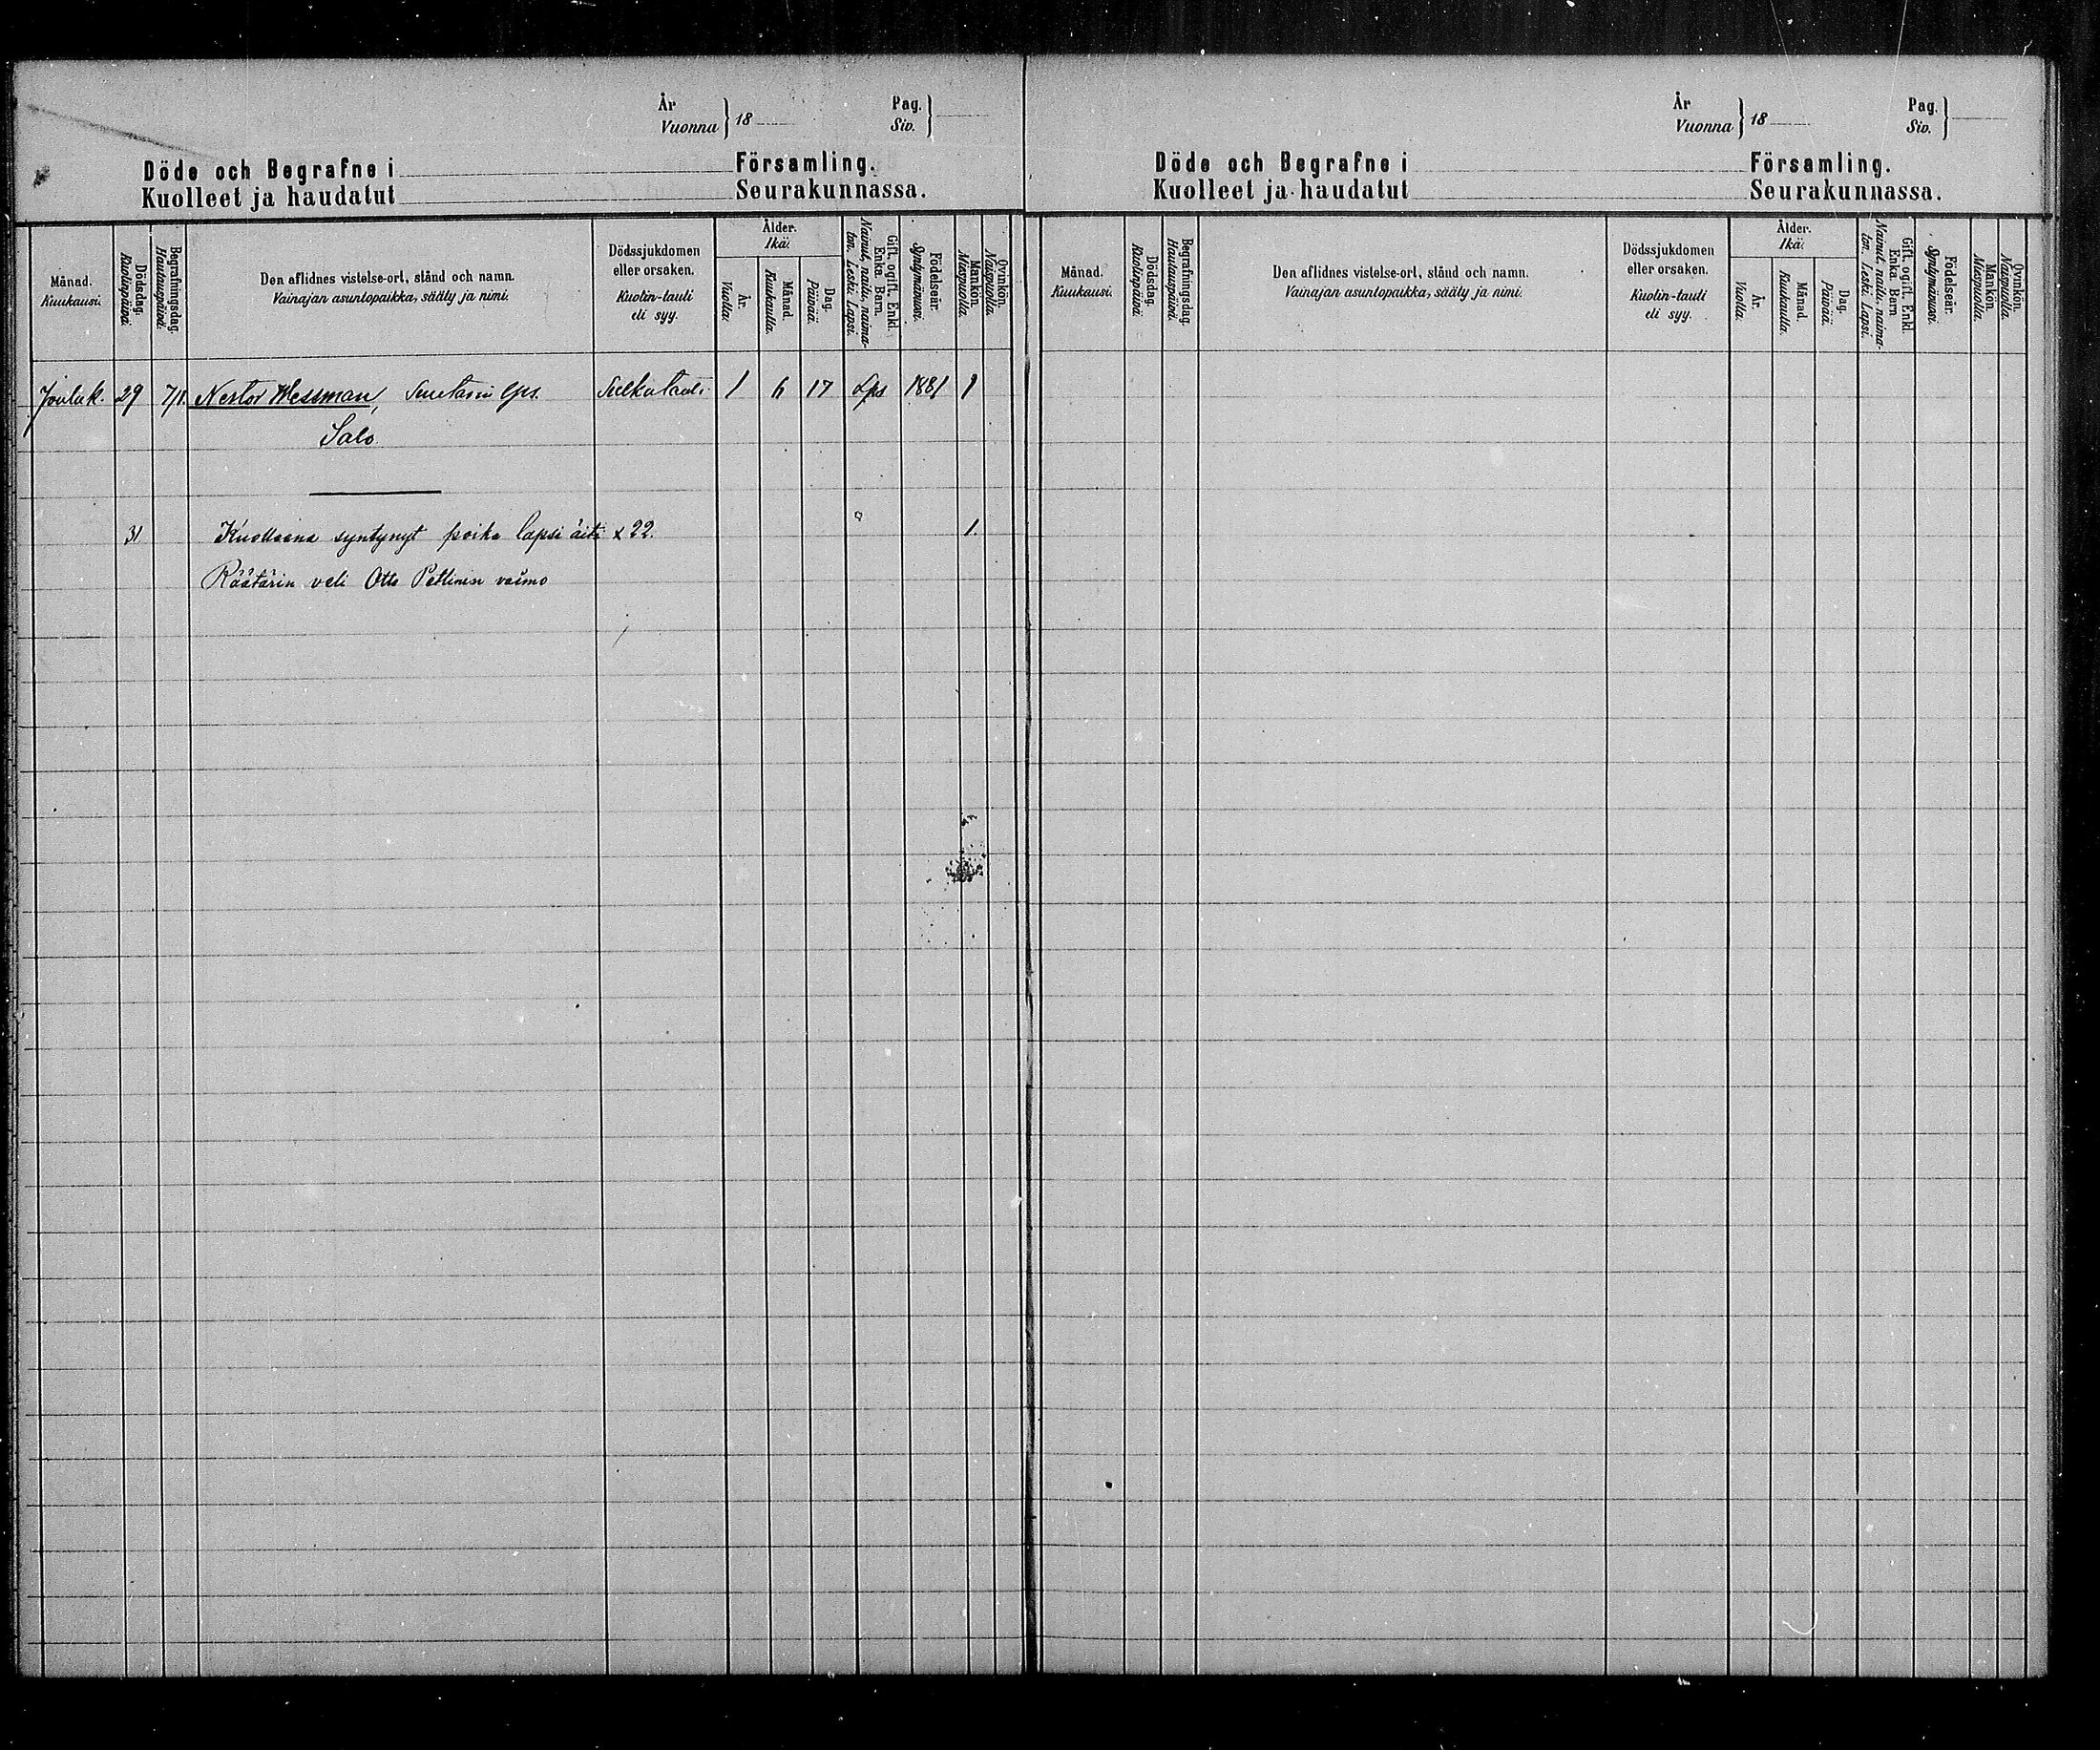 År
Vuonna } 18
Pag.
Siv. }
Döde och Begrafne i Församling.
Kuolleet ja haudatut Seurakunnassa.
Månad. Kuukausi.
Dödsdag. Kuolinpäivä.
Begrafningsdag. Hautauspäivä.
Den aflidnes vistelse-ort, stånd och namn.
Vainajan asuntopaikka, sääty ja nimi.
Dödssjukdomen eller orsaken.
Kuolin-tauti eli syy.
Ålder. Ikä.
År. Vuotta.
Månad. Kuukautta.
Dag. Päivää.
Gift, ogift. Enkl. Enka. Barn.
Nainut, naitu, naimaton. Leski. Lapsi.
Födelseår. Syntymävuosi.
Mankön. Miespuolia.
Qvinkön. Naispuolia.
Jouluk. 29 7/1. Nestor Wessman, lps. Sulkutauti 1 6 17 Lps 1881 1
Salo
31 Kuolleena syntynyt poika lapsi äiti x 22. 1.
Räätärin veli Otto Petlinin vaimo
År
Vuonna } 18
Pag.
Siv. }
Döde och Begrafne i Församling.
Kuolleet ja haudatut Seurakunnassa.
Månad. Kuukausi.
Dödsdag. Kuolinpäivä.
Begrafningsdag. Hautauspäivä.
Den aflidnes vistelse-ort, stånd och namn.
Vainajan asuntopaikka, sääty ja nimi.
Dödssjukdomen eller orsaken.
Kuolin-tauti eli syy.
Ålder. Ikä.
År. Vuotta.
Månad. Kuukautta.
Dag. Päivää.
Gift, ogift. Enkl. Enka. Barn
Nainut, naitu, naimaton. Leski. Lapsi.
Födelseår. Syntymävuosi.
Mankön. Miespuolia.
Qvinkön. Naispuolia.